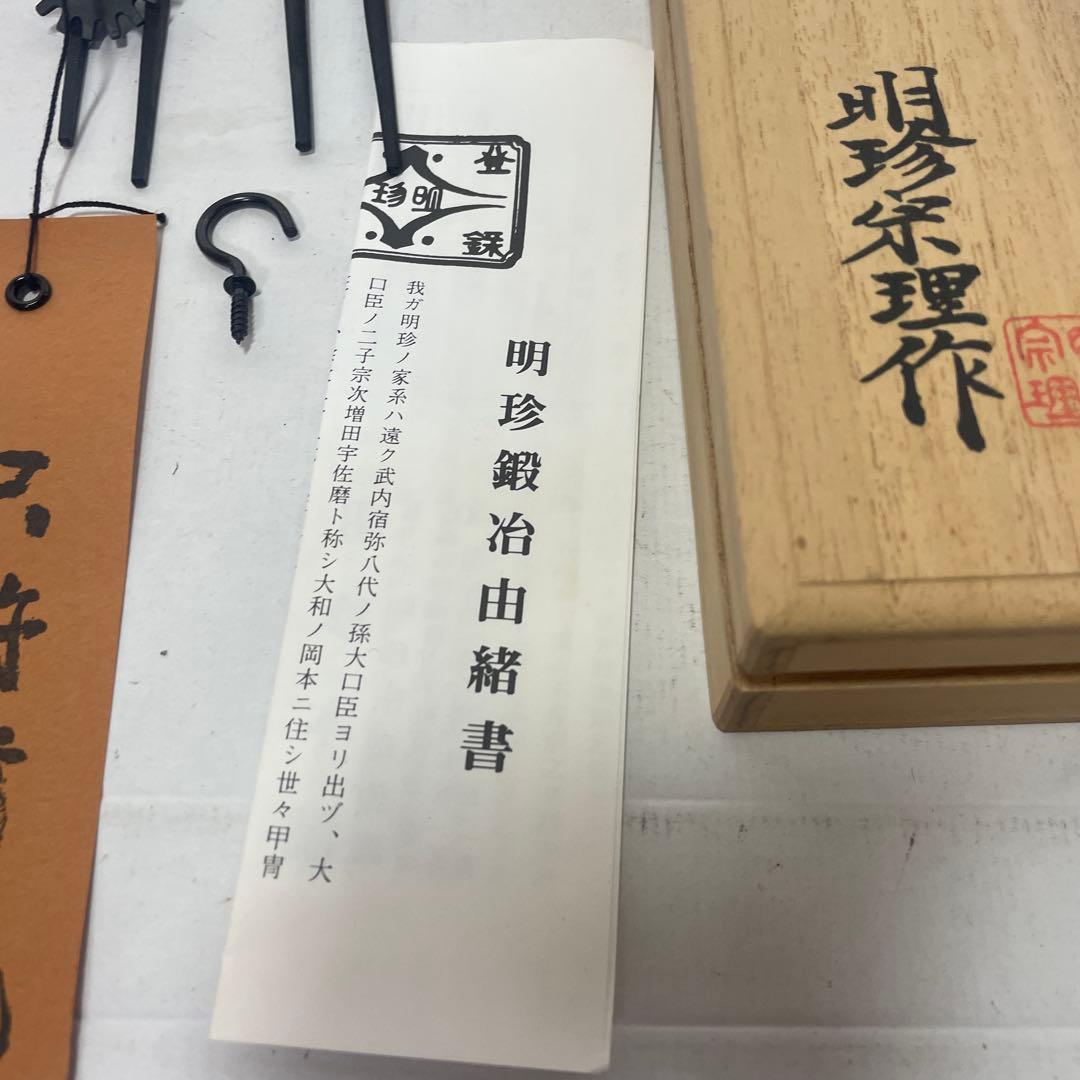 明珍宗理作
宗理
登録
明珍
明珍鍛冶由緒書
我ガ明珍ノ家系ハ遠ク武内宿弥八代ノ孫大口臣ヨリ出ヅ、大
口臣ノ二子宗次増田宇佐磨ト称シ大和ノ岡本ニ住シ世々甲冑